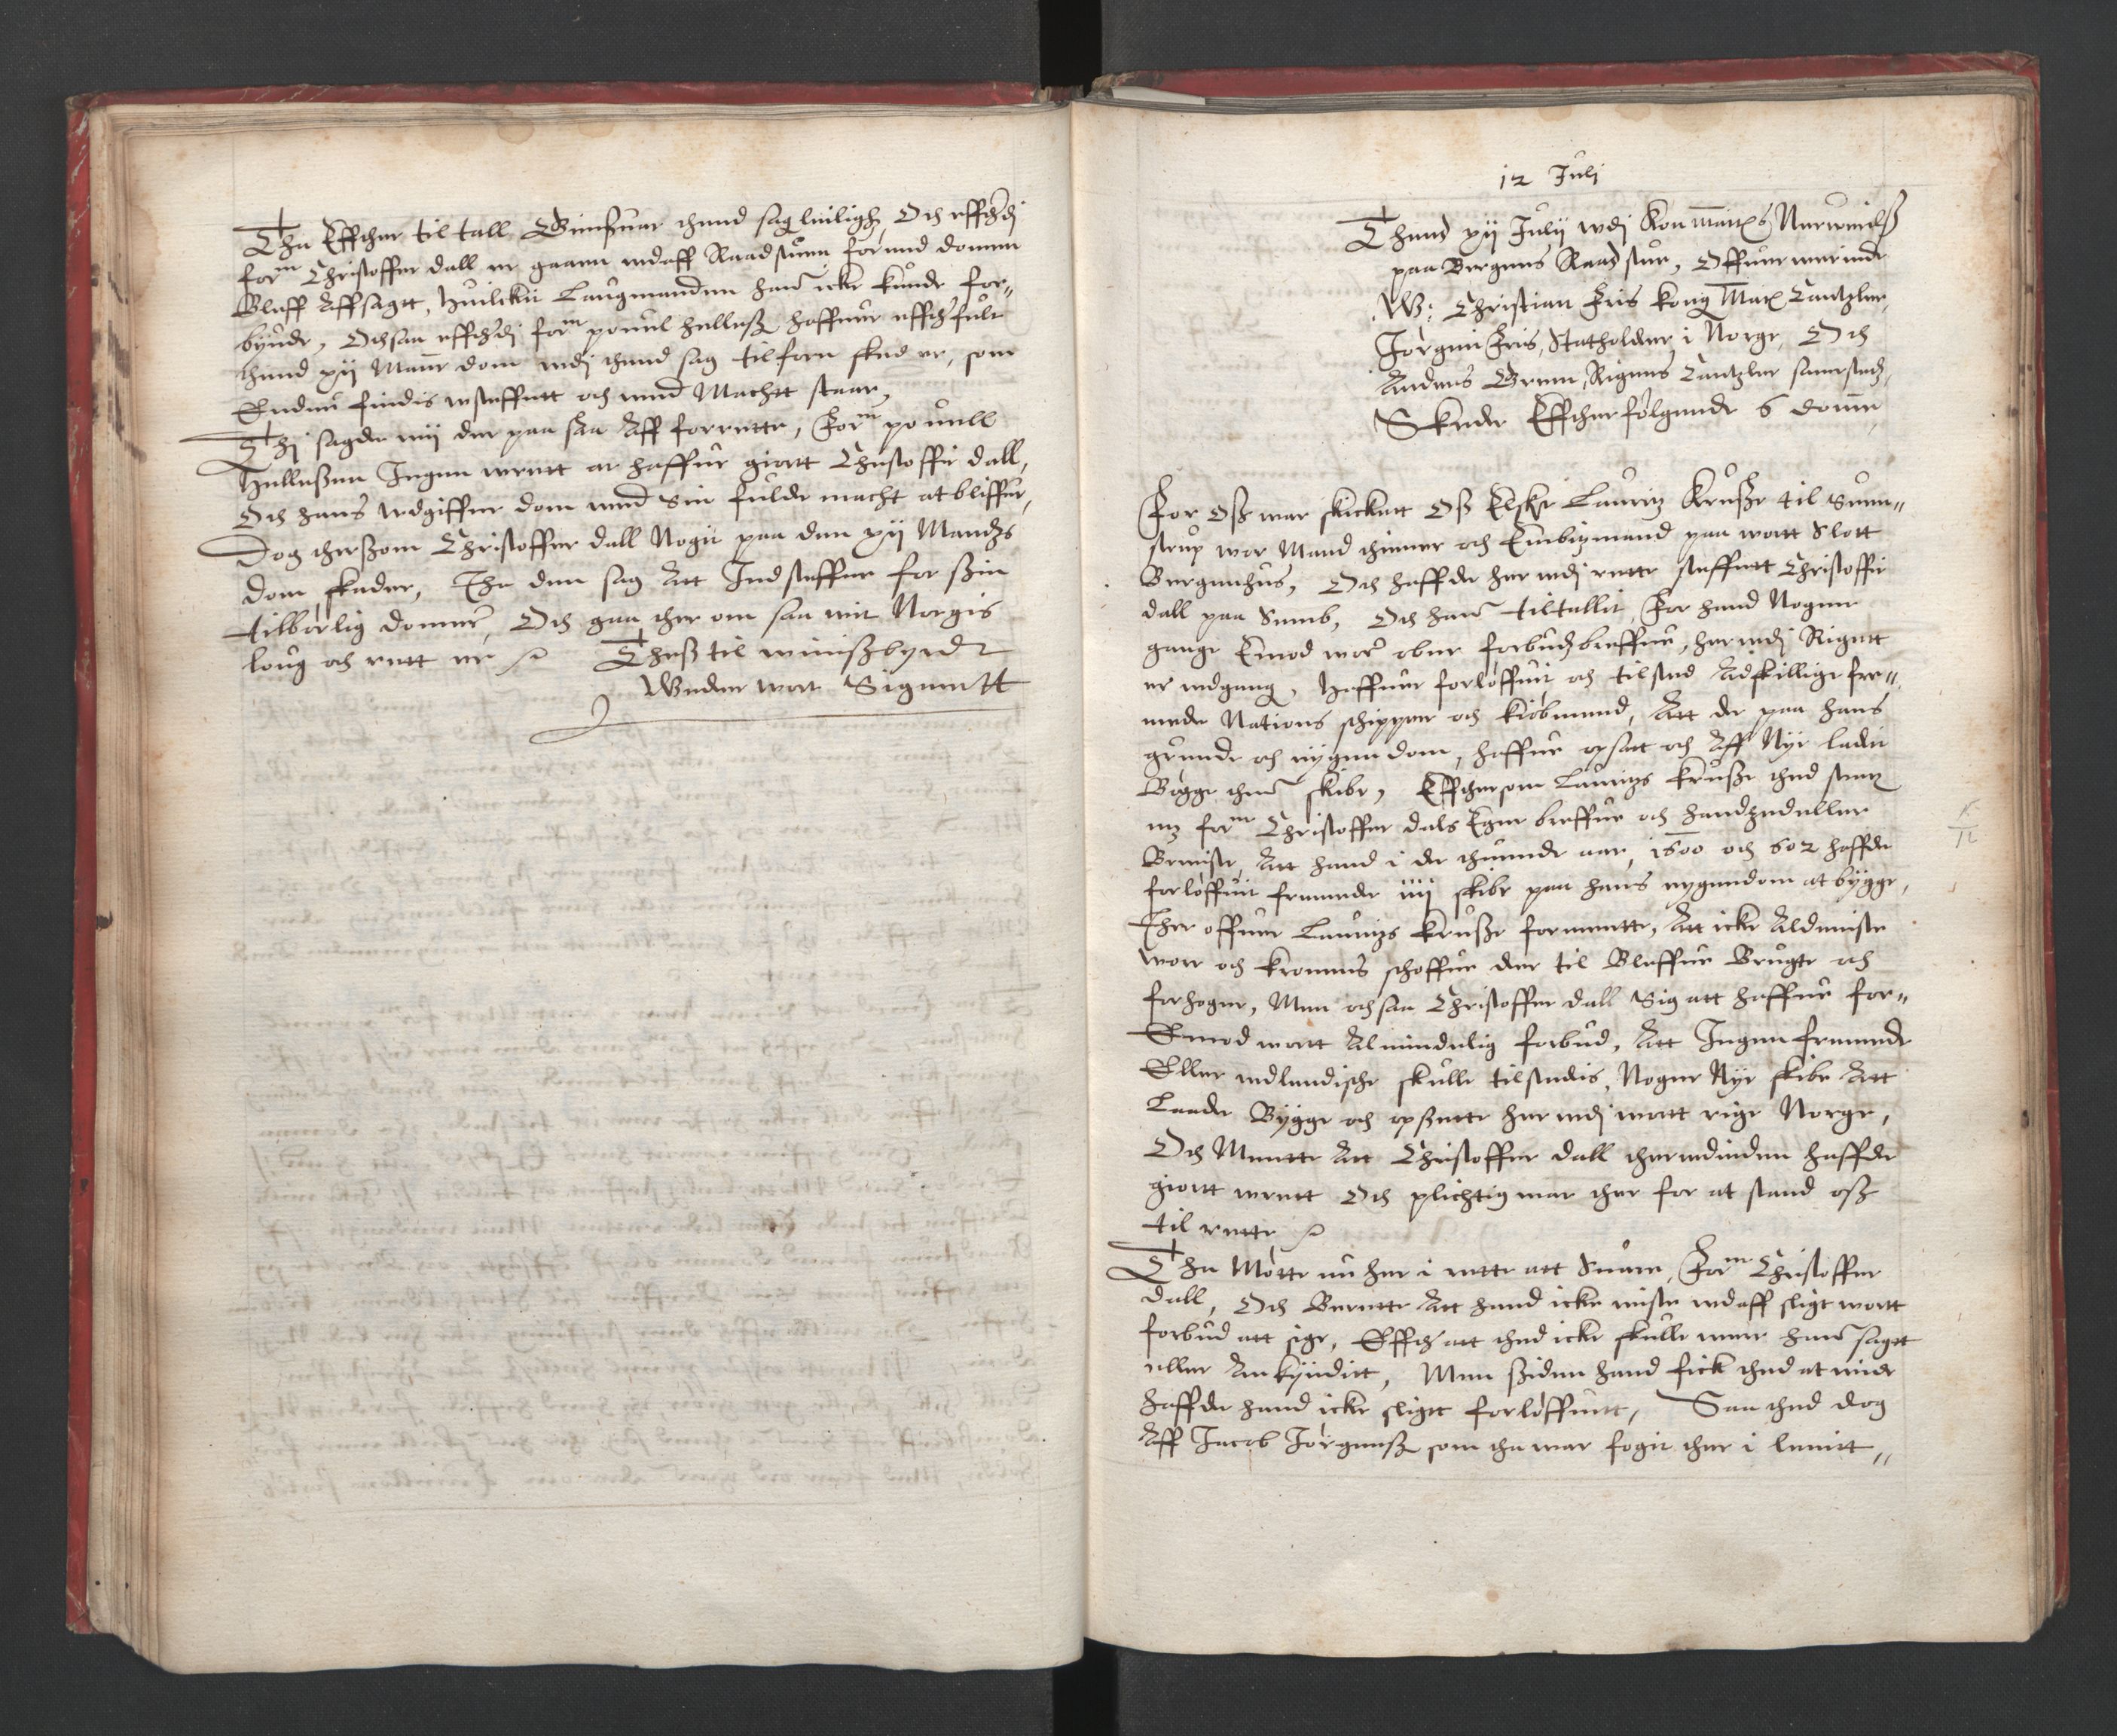 Tha Effther til tall Giensuar thend sag leiligh, Och effthrdj
for^m Christoffer dall er gaaen wdaff Raadstuen førind domen
Bleff Affsagtt, huilckit Laugmanden ham icke kunde for„
byude, Ochsaa effthrdj for^m pouul hellesß haffuer effthrfult
thend xij Mant dom wdj thend sag tilforn sked er, som
Enden findis wsteffnett och wed Machtt staar,
Thj sagde wij der paa saa Aff for rette, For^m pouell
Hellesßen Ingen wrett at haffue giort Christoffer dall,
Och hans wdgiffne dom wed sin fulde macht at bliffue,
Dog thersßom Christoffer dall Nogit paa den xij Mandhs
dom skader, Tha den sag Att Indsteffne for sßin
tilbørlig dommer, Och gaa ther om saa wit Norgis
loug och rett er Thesß til winisßbyrdt
Wnder wort Signett
12 Julj
Thend xij Julij wdj Kon Maitts Nerwerelsß
paa Bergens Raadstue, Offuerwerinde
W: Christian Friis kong Matz Cantzler,
Jørgen Friis, Statholder i Norge, Och
Anders Green, Rigens Cantzler samesteds,
Skede Effcherfølgende 6 domme
For Osß war skickett Osß Elske Lauritz Krusße til Suen„
strup wor Mand thiener och Embitzmand paa wortt Slott
Bergenhus, Och haffde her wdj rette steffnett Christoffer
dall paa Semb, Och ham tiltallit, For hand Nogne
gange Emod wore obne forbudsbreffue, her wdj Rigett
er wdgang, Haffuer forløffuit och tilsted Adskillige fre„
mede Nations schippere och kiøbmend, Att de paa hans
grunde och eygendom, haffue opsatt och Aff Nye ladit
Bigge them skibe, Effthersom Lauritzs Krusße thed sam„
me for^m Christoffer dals Egne breffue och handzedeller
Beuiste, Att hand i de thuende aar, 1600 och 602 haffde
forløffuit fremmede iiij skibe paa hans eygendom at bygge,
Ther offuer Lauritzs Krusße formente, Att icke Aldeniste
wore och Kronens schoffue der til Bleffue Brugte och
forhogne, Men ochsaa Christoffer dall Sig att haffue for„
Emod wortt Almindelig forbud, Att Ingen fremmede
Eller indlendische skulle tilstedis, Nogne Nye skibe Att
Laade Bygge och opsßette her wdj wortt rige Norge,
Och Mente Att Christoffer dall therwdinden haffde
giortt wrett Och plichtig war ther for at stand osß
til rette
Tha Møtte nu her i rette att Suare, For^m Christoffer
dall, Och Berette Att hand icke wiste wdaff sligt wortt
forbud att sige, Effthr att thed icke skulle were ham sagtt
eller Ankyndit, Men sßiden hand fick thed at wide
haffde hand icke sligtt forløffuett, Saa thed dog
Aff Jacob Jørgensß som tha war fogit ther i lenitt„